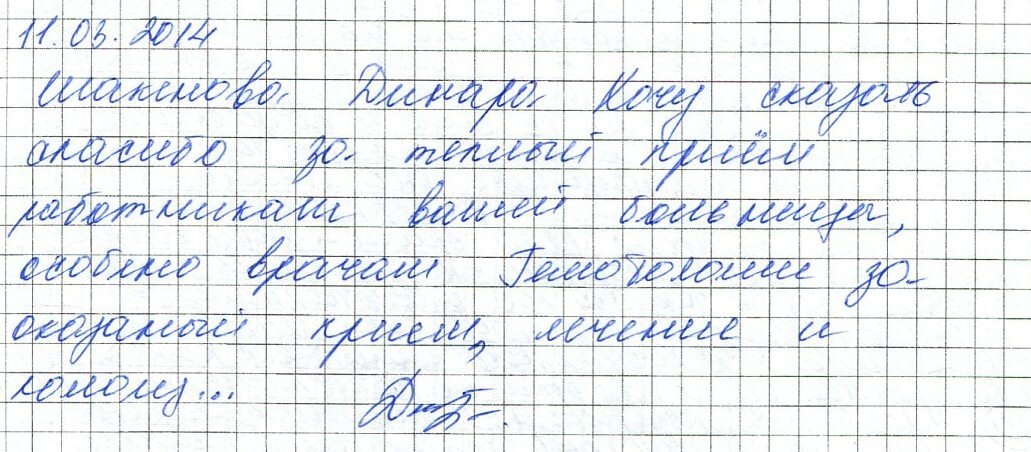 11.03.2014
Шакенова Динара Хочу сказать
спасибо за теплый приём
работникам вашей больницы,
особено врачам Гемотологии за
оказаный прием, лечение и
помощ...